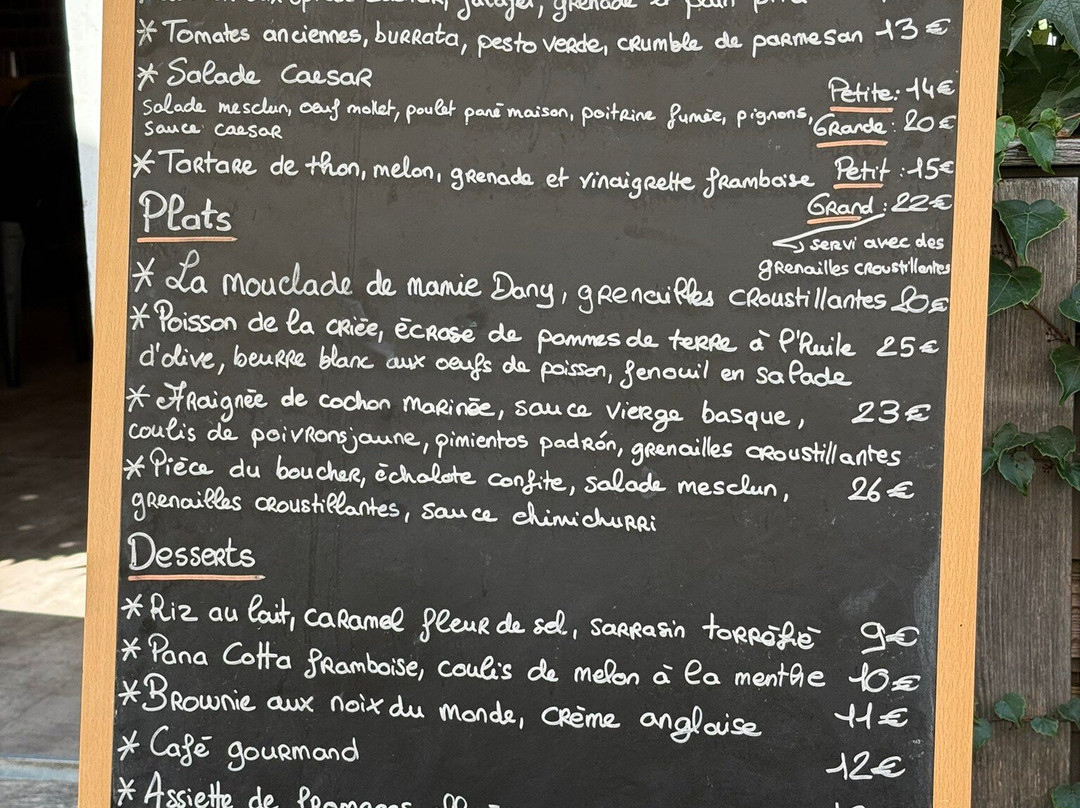 grenade et pain
* Tomates anciennes, burrata, pesto verde, crumble de parmesan 13€
* Salade Caesar Petite: 14€
Salade mesclun, oeuf mollet, poulet pané maison, poitrine fumée, pignons, Grande: 20€
sauce caesar
* Tartare de thon, melon, grenade et vinaigrette framboise Petit: 15€
Grand: 22€
Plats
servi avec des
grenailles croustillantes
* La mouclade de mamie Dany, grenailles croustillantes 20€
* Poisson de la criée, écrasé de pommes de terre à l'huile 25€
d'olive, beurre blanc aux oeufs de poisson, fenouil en salade
* Araignée de cochon marinée, sauce vierge basque, 23€
coulis de poivrons jaune, pimientos padrón, grenailles croustillantes
* Pièce du boucher, échalote confite, salade mesclun, 26€
grenailles croustillantes, sauce chimichurri
Desserts
* Riz au lait, caramel fleur de sel, sarrasin torréfié 9€
* Pana Cotta framboise, coulis de melon à la menthe 10€
* Brownie aux noix du monde, crème anglaise 11€
* Café gourmand 12€
* Assiette de fromages